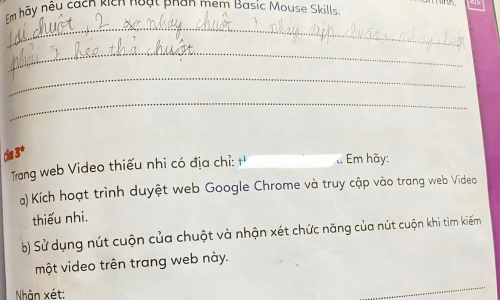 Em hãy nêu cách kích hoạt phần mềm Basic Mouse Skills.
1 di chuột 2 nháy chuột 3 nháy
phải 5 kéo thả chuột
Câu 3*
Trang web Video thiếu nhi có địa chỉ: Em hãy:
a) Kích hoạt trình duyệt web Google Chrome và truy cập vào trang web Video
thiếu nhi.
b) Sử dụng nút cuộn của chuột và nhận xét chức năng của nút cuộn khi tìm kiếm
một video trên trang web này.
Nhận xét: